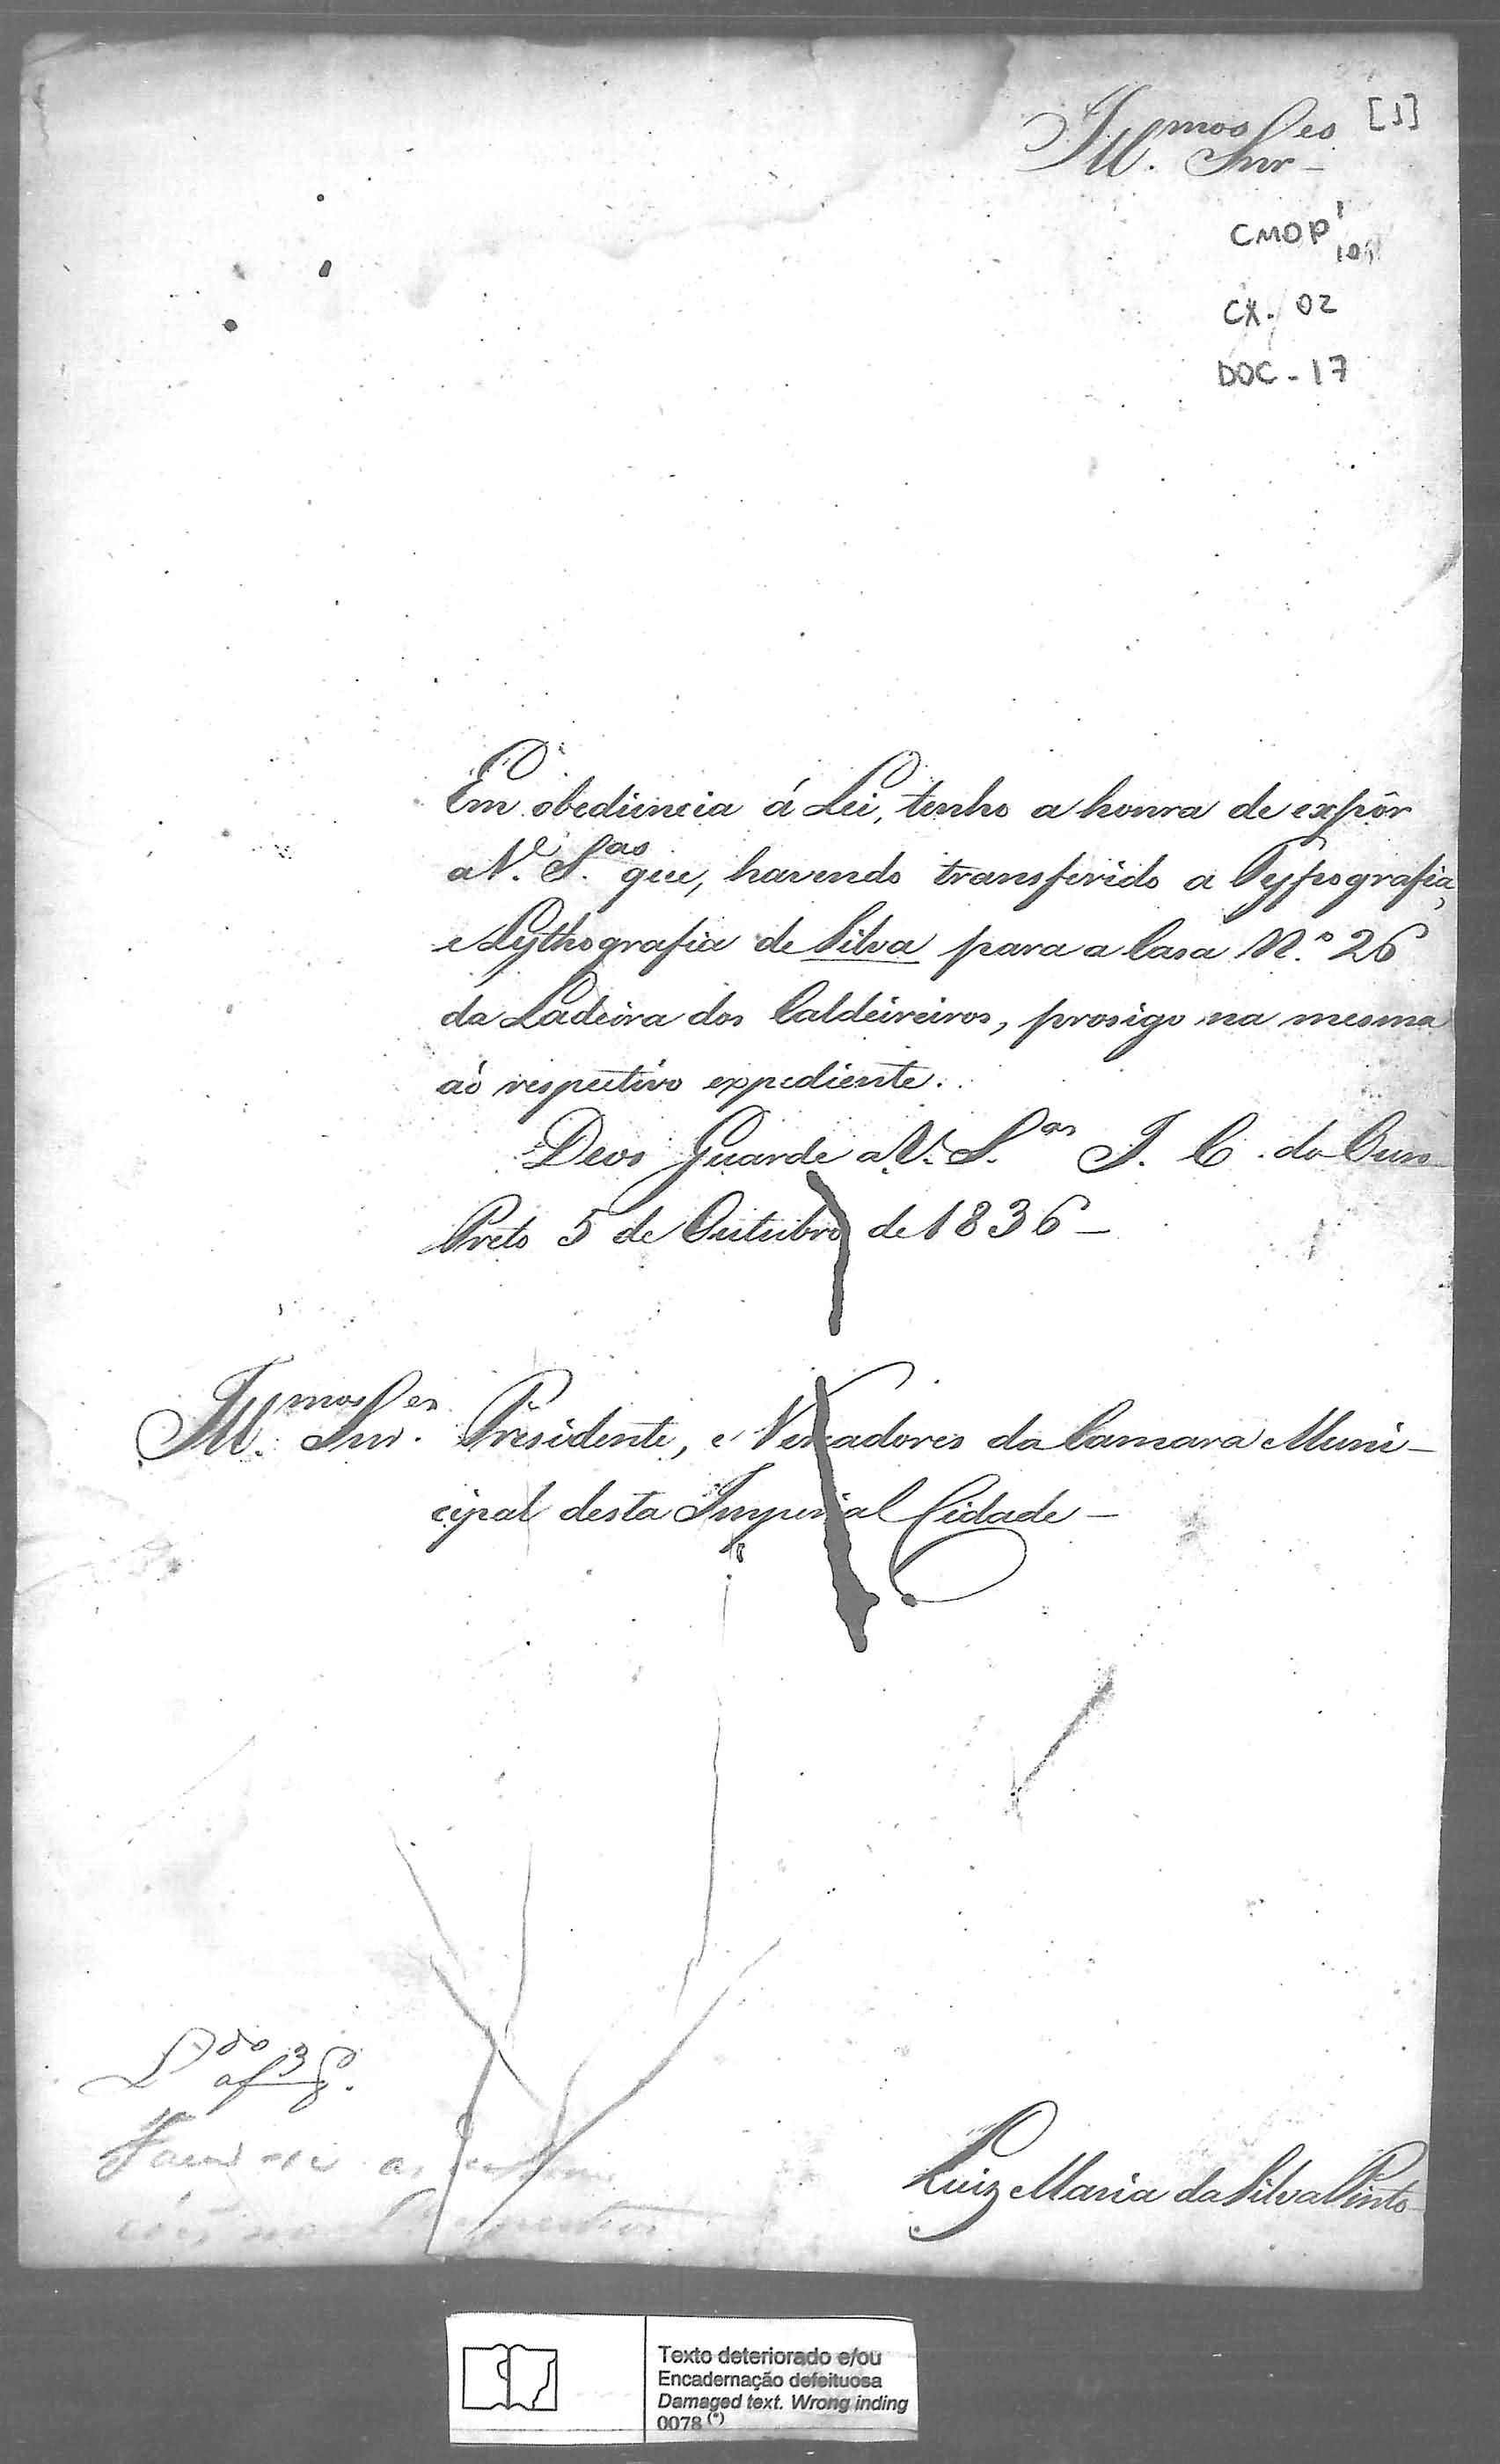 Ill.mos Snr.es [1]
CMOP
CX. 02
DOC - 17
Em obediencia á Lei, tenho a honra de expôr
a V. S.as que, havendo transferido a Typografia,
e Lythografia de Silva para a Casa N.º 26
da Ladeira dos Caldeireiros, prosigo na mesma
aó respectivo expediente.
Deos Guarde a V. S.as I. C. do Ouro
Preto 5 de Outubro de 1836 —
Ill.mos Snr.es Presidente, e Vereadores da Camara Muni-
cipal desta Imperial Cidade —
Luiz Maria da Silva Pinto
Texto deteriorado e/ou
Encadernação defeituosa
Damaged text. Wrong inding
0078 (*)